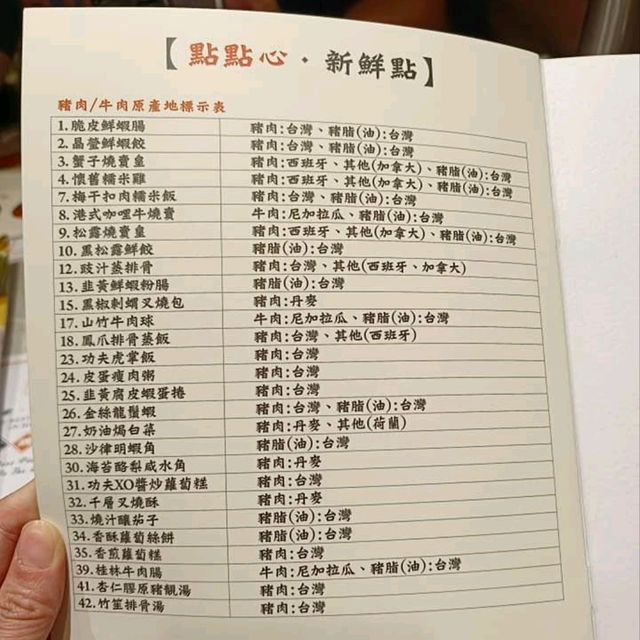 【點點心・新鮮點】
豬肉/牛肉原產地標示表
1.脆皮鮮蝦腸 豬肉:台灣、豬脂(油):台灣
2.晶瑩鮮蝦餃 豬肉:台灣、豬脂(油):台灣
3.蟹子燒賣皇 豬肉:西班牙、其他(加拿大)、豬脂(油):台灣
4.懷舊糯米雞 豬肉:西班牙、其他(加拿大)、豬脂(油):台灣
7.梅干扣肉糯米飯 豬肉:台灣、豬脂(油):台灣
8.港式咖哩牛燒賣 牛肉:尼加拉瓜、豬脂(油):台灣
9.松露燒賣皇 豬肉:西班牙、其他(加拿大)、豬脂(油):台灣
10.黑松露鮮餃 豬脂(油):台灣
12.豉汁蒸排骨 豬肉:台灣、其他(西班牙、加拿大)
13.韭黃鮮蝦粉腸 豬脂(油):台灣
15.黑椒刺蝟叉燒包 豬肉:丹麥
17.山竹牛肉球 牛肉:尼加拉瓜、豬脂(油):台灣
18.鳳爪排骨蒸飯 豬肉:台灣、其他(西班牙)
23.功夫虎掌飯 豬肉:台灣
24.皮蛋瘦肉粥 豬肉:台灣
25.韭黃腐皮蝦蛋捲 豬肉:台灣
26.金絲龍鬚蝦 豬肉:台灣、豬脂(油):台灣
27.奶油焗白菜 豬肉:丹麥、其他(荷蘭)
28.沙律明蝦角 豬脂(油):台灣
30.海苔酪梨咸水角 豬肉:丹麥
31.功夫XO醬炒蘿蔔糕 豬肉:台灣
32.千層叉燒酥 豬肉:丹麥
33.燒汁釀茄子 豬脂(油):台灣
34.香酥蘿蔔絲餅 豬脂(油):台灣
35.香煎蘿蔔糕 豬肉:台灣
39.桂林牛肉腸 牛肉:尼加拉瓜、豬脂(油):台灣
41.杏仁膠原豬靚湯 豬肉:台灣
42.竹笙排骨湯 豬肉:台灣